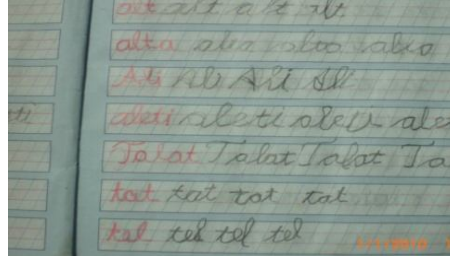 alt alt alt alt
alta
Ali Ali Ali Ali
aleti aleti aleti ale
Talat Talat Talat Ta
tat tat tat tat
tel tel tel tel